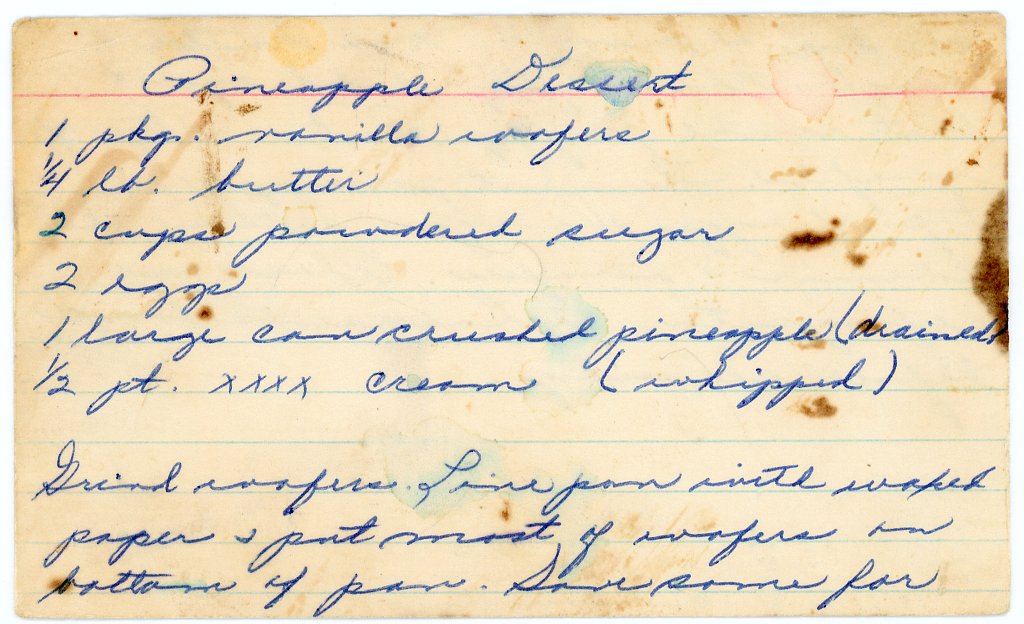 Pineapple Dessert
1 pkg. vanilla wafers
1/4 lb. butter
2 cups powdered sugar
2 eggs
1 large can crushed pineapple (drained)
1/2 pt. xxxx cream (whipped)
Grind wafers. Line pan with waxed
paper & put most of wafers on
bottom of pan. Save some for